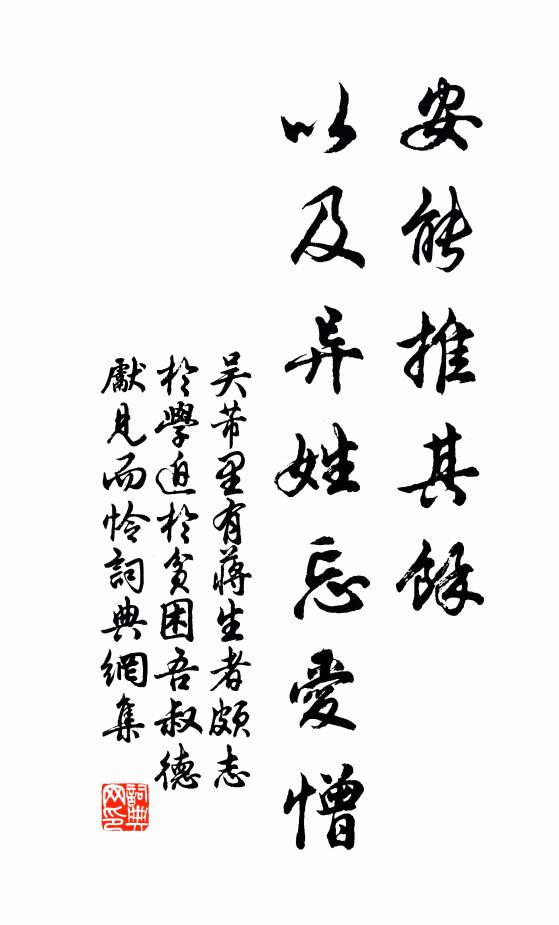 安能推其餘
以及异姓忘愛憎
吴芾里有蔣生者頗志
於學迫於貧困吾叔德
獻見而怜詞典網集
詞典网印